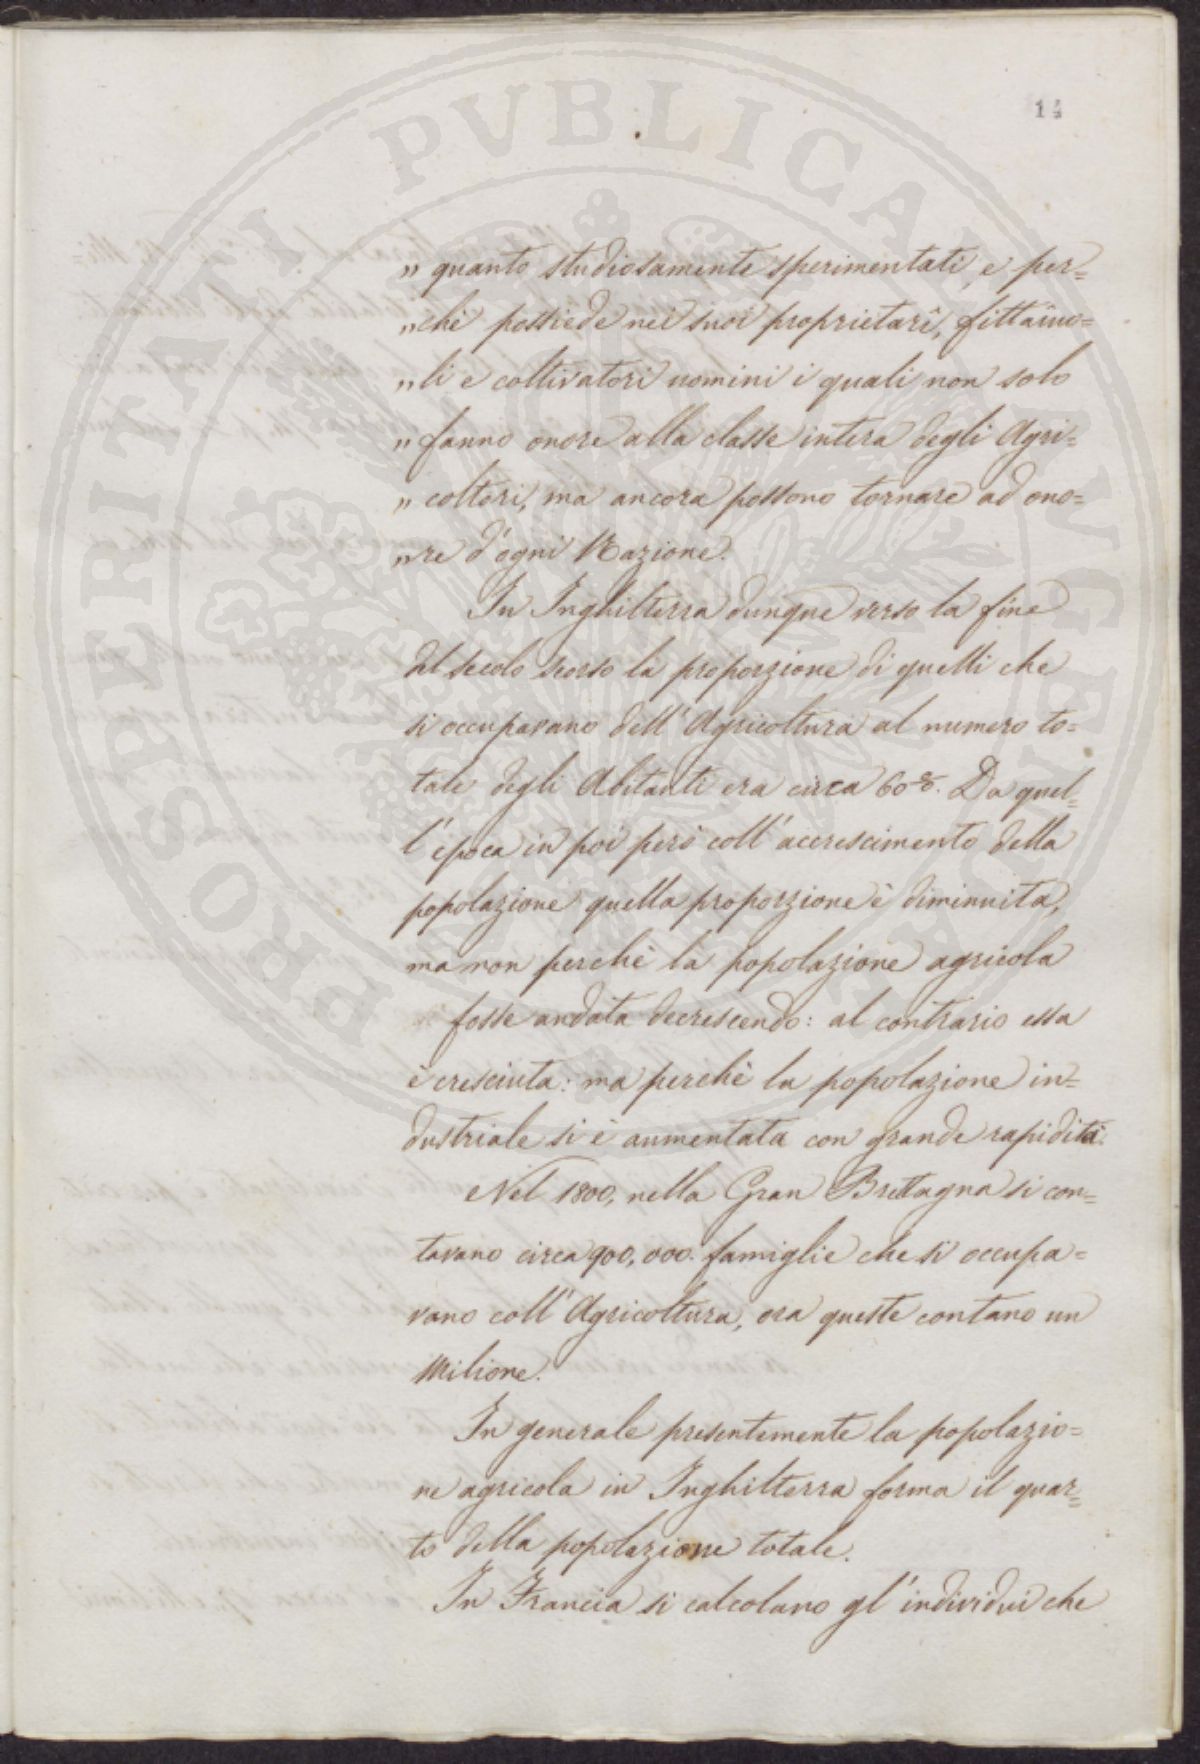 14
PROSPERITATI PVBLICAE AVGENDAE
„ quanto studiosamente sperimentati, e per=
„ chè possiede nei suoi proprietarî, fittaiuo=
„ li e coltivatori uomini i quali non solo
„ fanno onore alla classe intera degli Agri=
„ coltori, ma ancora possono tornare ad ono=
„ re d'ogni Nazione.
In Inghilterra dunque verso la fine
del secolo scorso la proporzione di quelli che
si occupavano dell'Agricoltura al numero to=
tale degli Abitanti era circa 60 %. Da quel=
l'epoca in poi però coll'accrescimento della
popolazione quella proporzione è diminuita,
ma non perchè la popolazione agricola
fosse andata decrescendo: al contrario essa
è cresciuta: ma perchè la popolazione in=
dustriale si è aumentata con grande rapidità.
Nel 1800, nella Gran Brettagna si con=
tavano circa 900,000. famiglie che si occupa=
vano coll'Agricoltura, ora queste contano un
Milione.
In generale presentemente la popolazio=
ne agricola in Inghilterra forma il quar=
to della popolazione totale.
In Francia si calcolano gl'individui che